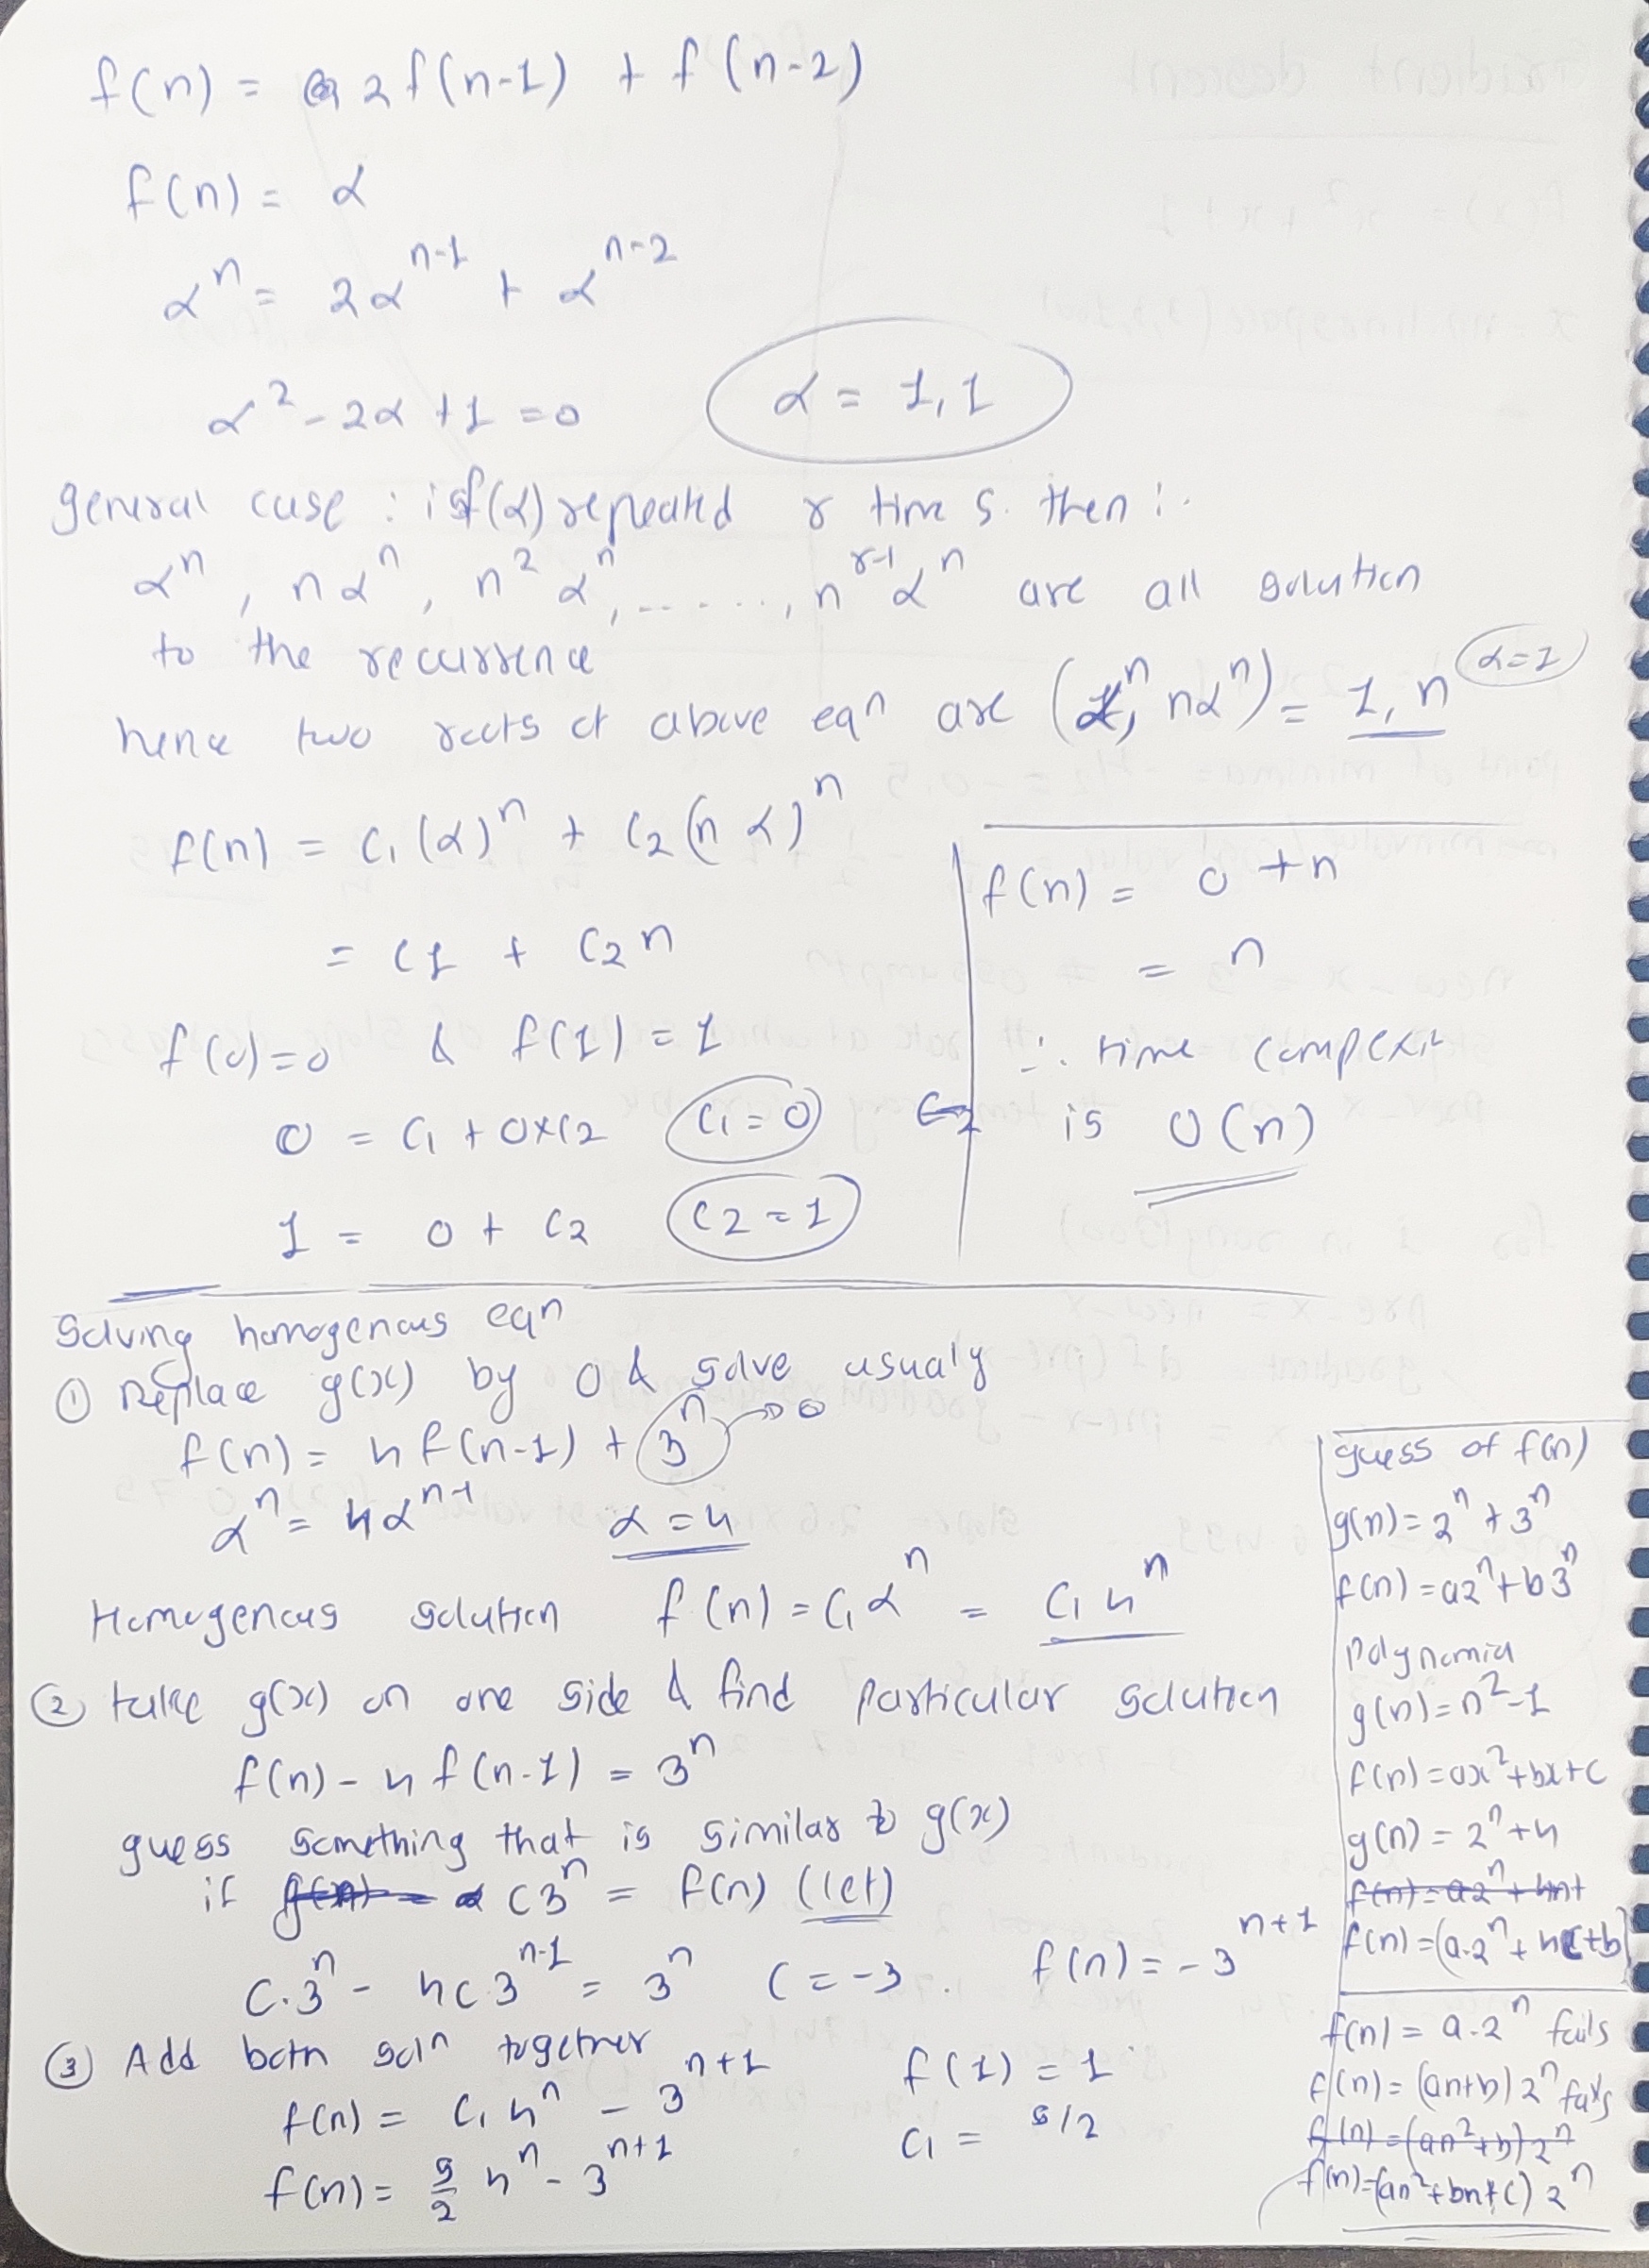 f(n) = 2f(n-1) + f(n-2)
f(n) = α
α^n = 2α^(n-1) + α^(n-2)
α^2 - 2α + 1 = 0    α = 1, 1
general case : if (α) repeated r times. then :-
α^n, nα^n, n^2 α^n, ......, n^(r-1) α^n are all solution
to the recurrence
hence two roots of above eqn are (α^n, nα^n) = 1, n    α=1
f(n) = C1(α)^n + C2(n α)^n
= C1 + C2n
f(0)=0 & f(1) = 1
0 = C1 + 0xC2    C1 = 0
1 = 0 + C2    C2 = 1
f(n) = 0 + n
= n
∴ time complexit
is O(n)
Solving homogenous eqn
① Replace g(x) by 0 & solve usualy
f(n) = 4f(n-1) + 3^n → 0
α^n = 4α^(n-1)    α = 4
Homogenous solution f(n) = C1α^n = C1 4^n
② take g(x) on one side & find particular solution
f(n) - 4f(n-1) = 3^n
guess something that is similar to g(x)
if C3^n = f(n) (let)
C.3^n - 4C.3^(n-1) = 3^n    C = -3.    f(n) = -3^(n+1)
③ Add both soln together
f(n) = C1 4^n - 3^(n+1)    f(1) = 1
C1 = 5/2
f(n) = 5/2 4^n - 3^(n+1)
guess of f(n)
g(n) = 2^n + 3^n
f(n) = a2^n + b3^n
polynomial
g(n) = n^2 - 1
f(n) = ax^2 + bx + c
g(n) = 2^n + n
f(n) = a2^n + bn +
f(n) = (a.2^n + n
f(n) = a.2^n fails
f(n) = (an+b) 2^n fails
f(n) = (an^2+b) 2^n
f(n) = (an^2 + bn + c) 2^n